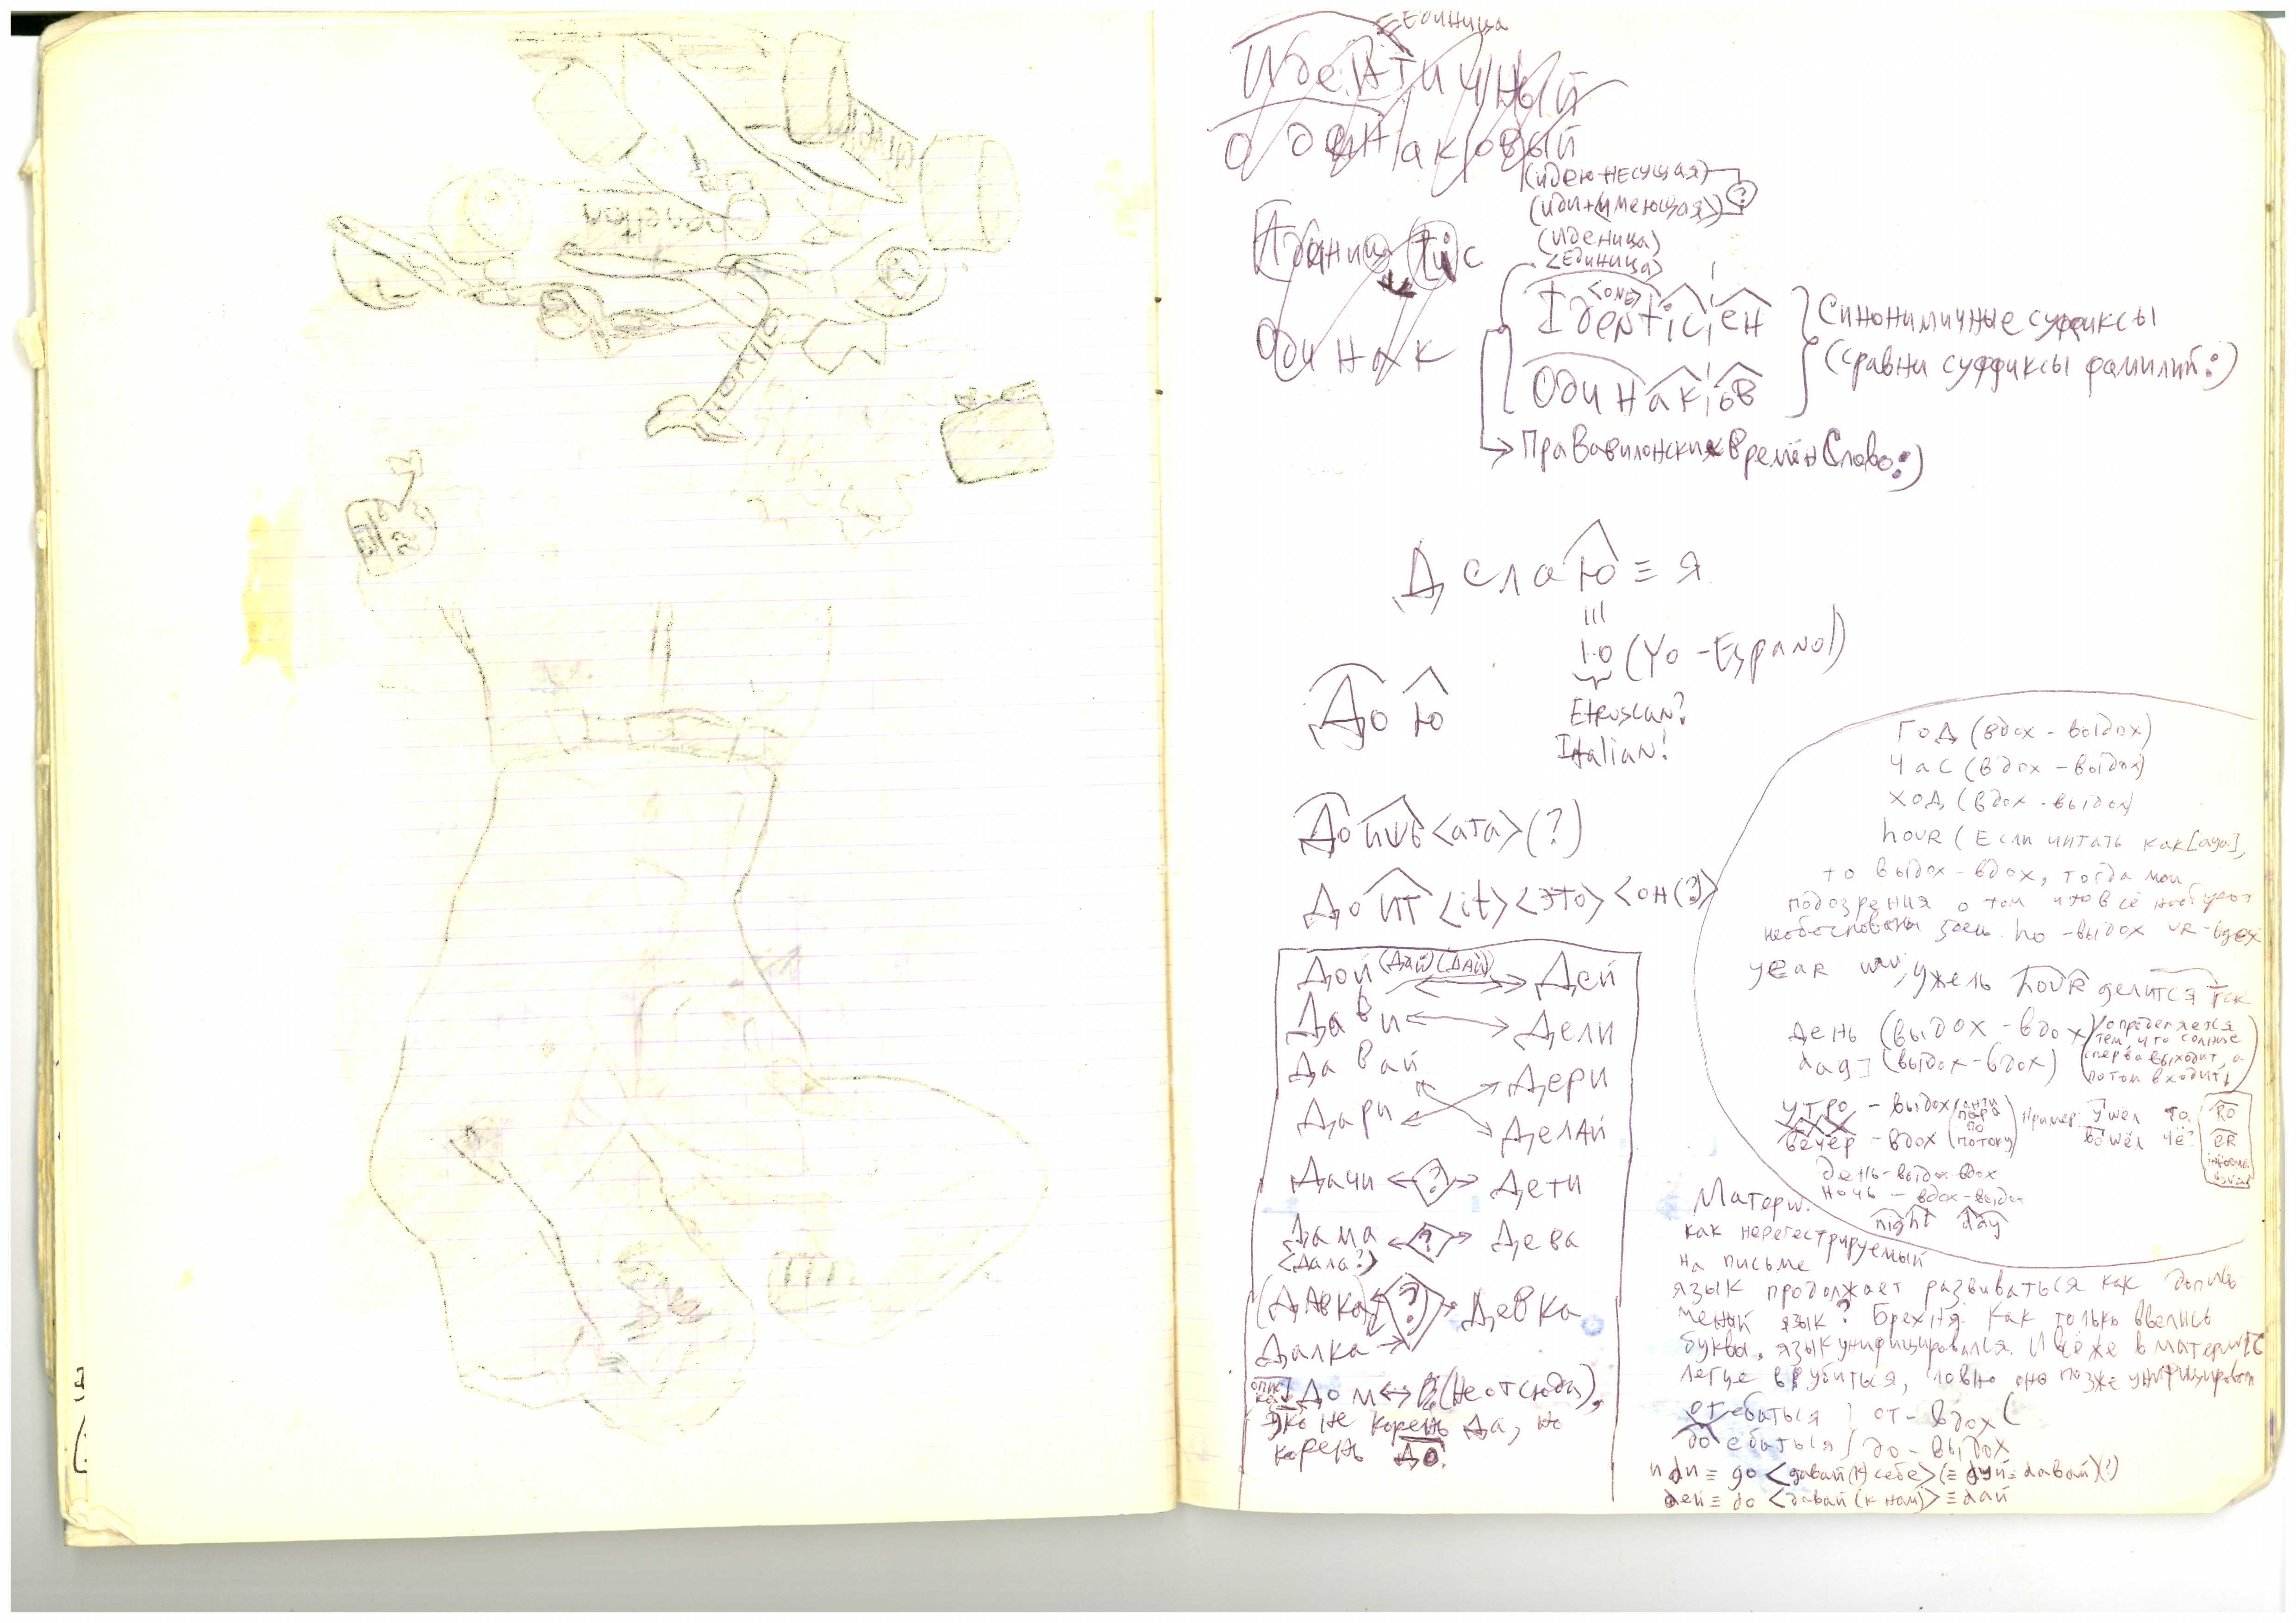 Benetton
≡Единица
Идентичный
одинаковый
(идею несущая)
(иди+имеющая) ?
(иденица)
<Единица>
Одинак
<one>
Identic|ен
Один ак|ов
Синонимичные суффиксы
(сравни суффиксы фамилий:)
Прававилонских времён Слово:)
Делаю ≡ я
ııı
io (Yo - Espanol)
Etruscan?
Italian!
До ю
До ишь <ата> (?)
До ит <it> <это> <он(?)>
Дой (Дай) (Дай) Дей
Дави Дели
Давай Дери
Дари Делай
Дачи <?> Дети
Дама <?> Дева
<Дала?>
(Давка) <?> Девка
Далка
Дом ↔ (Не отсюда),
ибо не корень Да, но
корень До.
год (вдох - выдох)
час (вдох - выдох)
ход (вдох - выдох)
houR (Если читать как [ауа],
то выдох - вдох, тогда мои
подозрения о том что всё
необоснованы здесь. ho - выдох uR - вдох
yeaR ужель houR делится так
День (выдох - вдох) (определяется
тем, что солнце
сперва выходит, а
потом входит)
day (выдох - вдох)
утро - выдох
вечер - вдох
(анти
пара
по
потоку)
Пример: ушёл то
вошёл чё?
Ro
eR
день - выдох - вдох
ночь - вдох - выдох
night day
Матерш.
как нерегестрируемый
на письме
язык продолжает развиваться как допись
менный язык? Брехня. Как только ввелись
буквы, язык унифицировался. И всё же в матерш
легче врубиться, словно оно позже унифицирован
отебаться } от - вдох (
до ебаться } до - выдох
иди ≡ до <давай(я) себе> (≡ дуй ≡ давай)(!)
дей ≡ до <давай (к нам)> ≡ дай